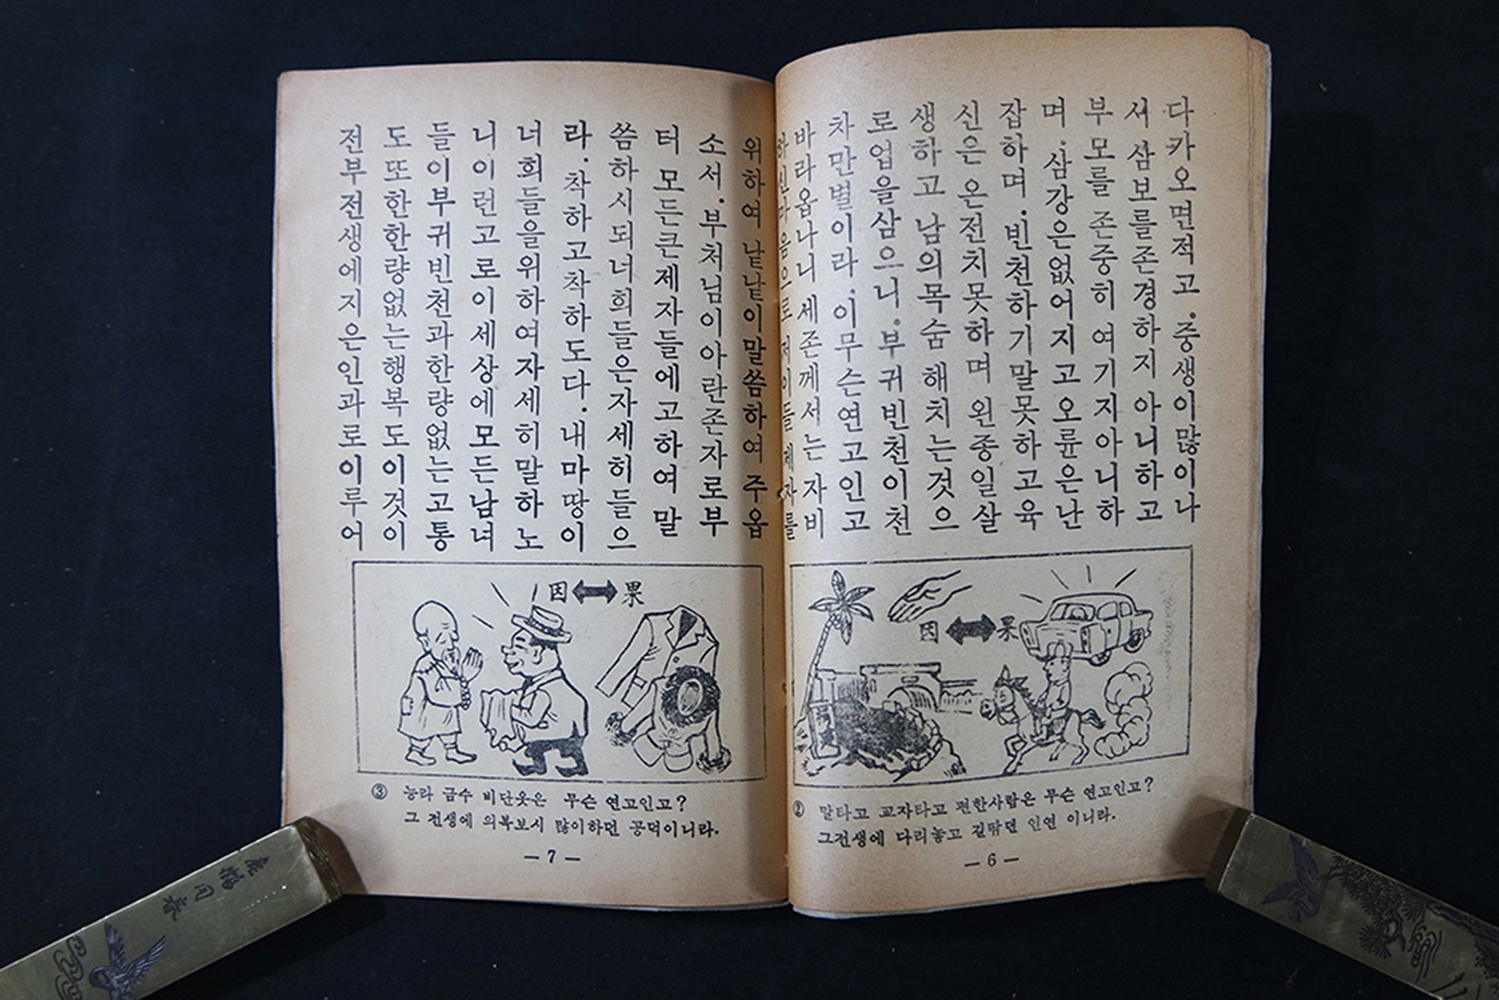 다카오면적고.중생이많이나
서삼보를존경하지 아니하고
부모를 존중히 여기지아니하
며.삼강은없어지고오륜은난
잡하며.빈천하기말못하고육
신은 온전치못하며 왼종일살
생하고 남의목숨 해치는것으
로업을삼으니.부귀빈천이천
차만별이라.이무슨연고인고
바라옵나니 세존께서는자비
하신마음으로 저이들 제자를
因 果
② 말타고 교자타고 편한사람은 무슨 연고인고?
그전생에 다리놓고 길딲던 인연 이니라.
— 6 —
위하여 낱낱이말씀하여 주옵
소서.부처님이아란존자로부
터 모든큰제자들에고하여 말
씀하시되너희들은자세히들으
라.착하고착하도다.내마땅이
너희들을위하여자세히말하노
니이런고로이세상에모든남녀
들이부귀빈천과한량없는고통
도또한한량없는행복도이것이
전부전생에지은인과로이루어
因 果
③ 능라 금수 비단옷은 무슨 연고인고?
그 전생에 의복보시 많이하던 공덕이니라.
— 7 —